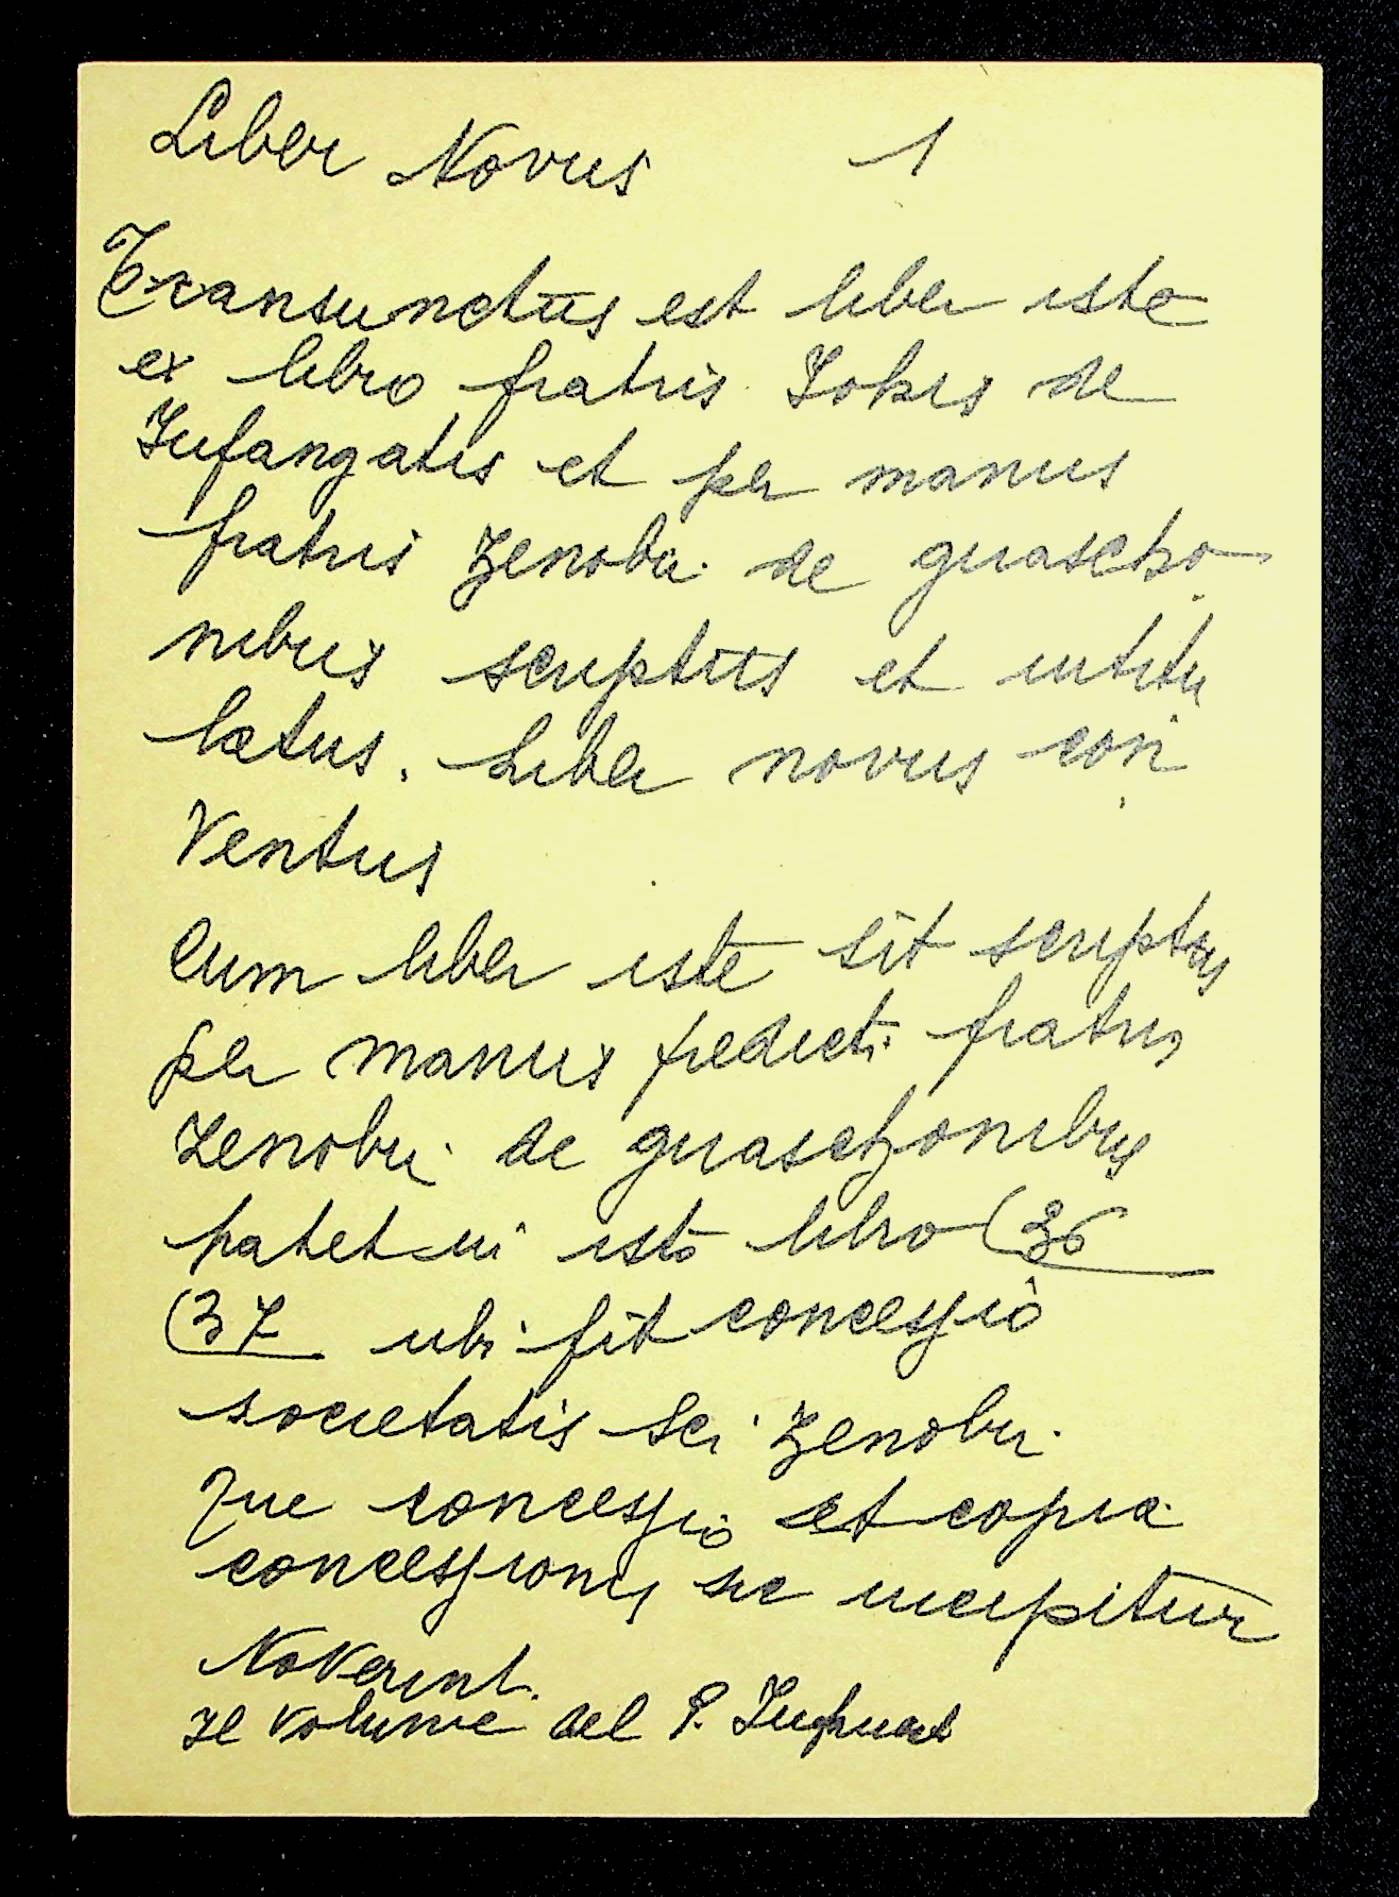 Liber Novus 1
Transunctus est liber iste
ex libro fratris Johis de
Infangatis et per manus
fratris Zenobii de guascho
nibus scriptus et intitu
latus. Liber novus con
ventus
Cum liber iste sit scriptus
per manus predicti fratris
Zenobii de guaschonibus
patet in isto libro (36
(37 ubi fit concessio
societatis Sci Zenobii
que concessio et copia
concessionis sic incipitur
Noverint.
Il volume del P.